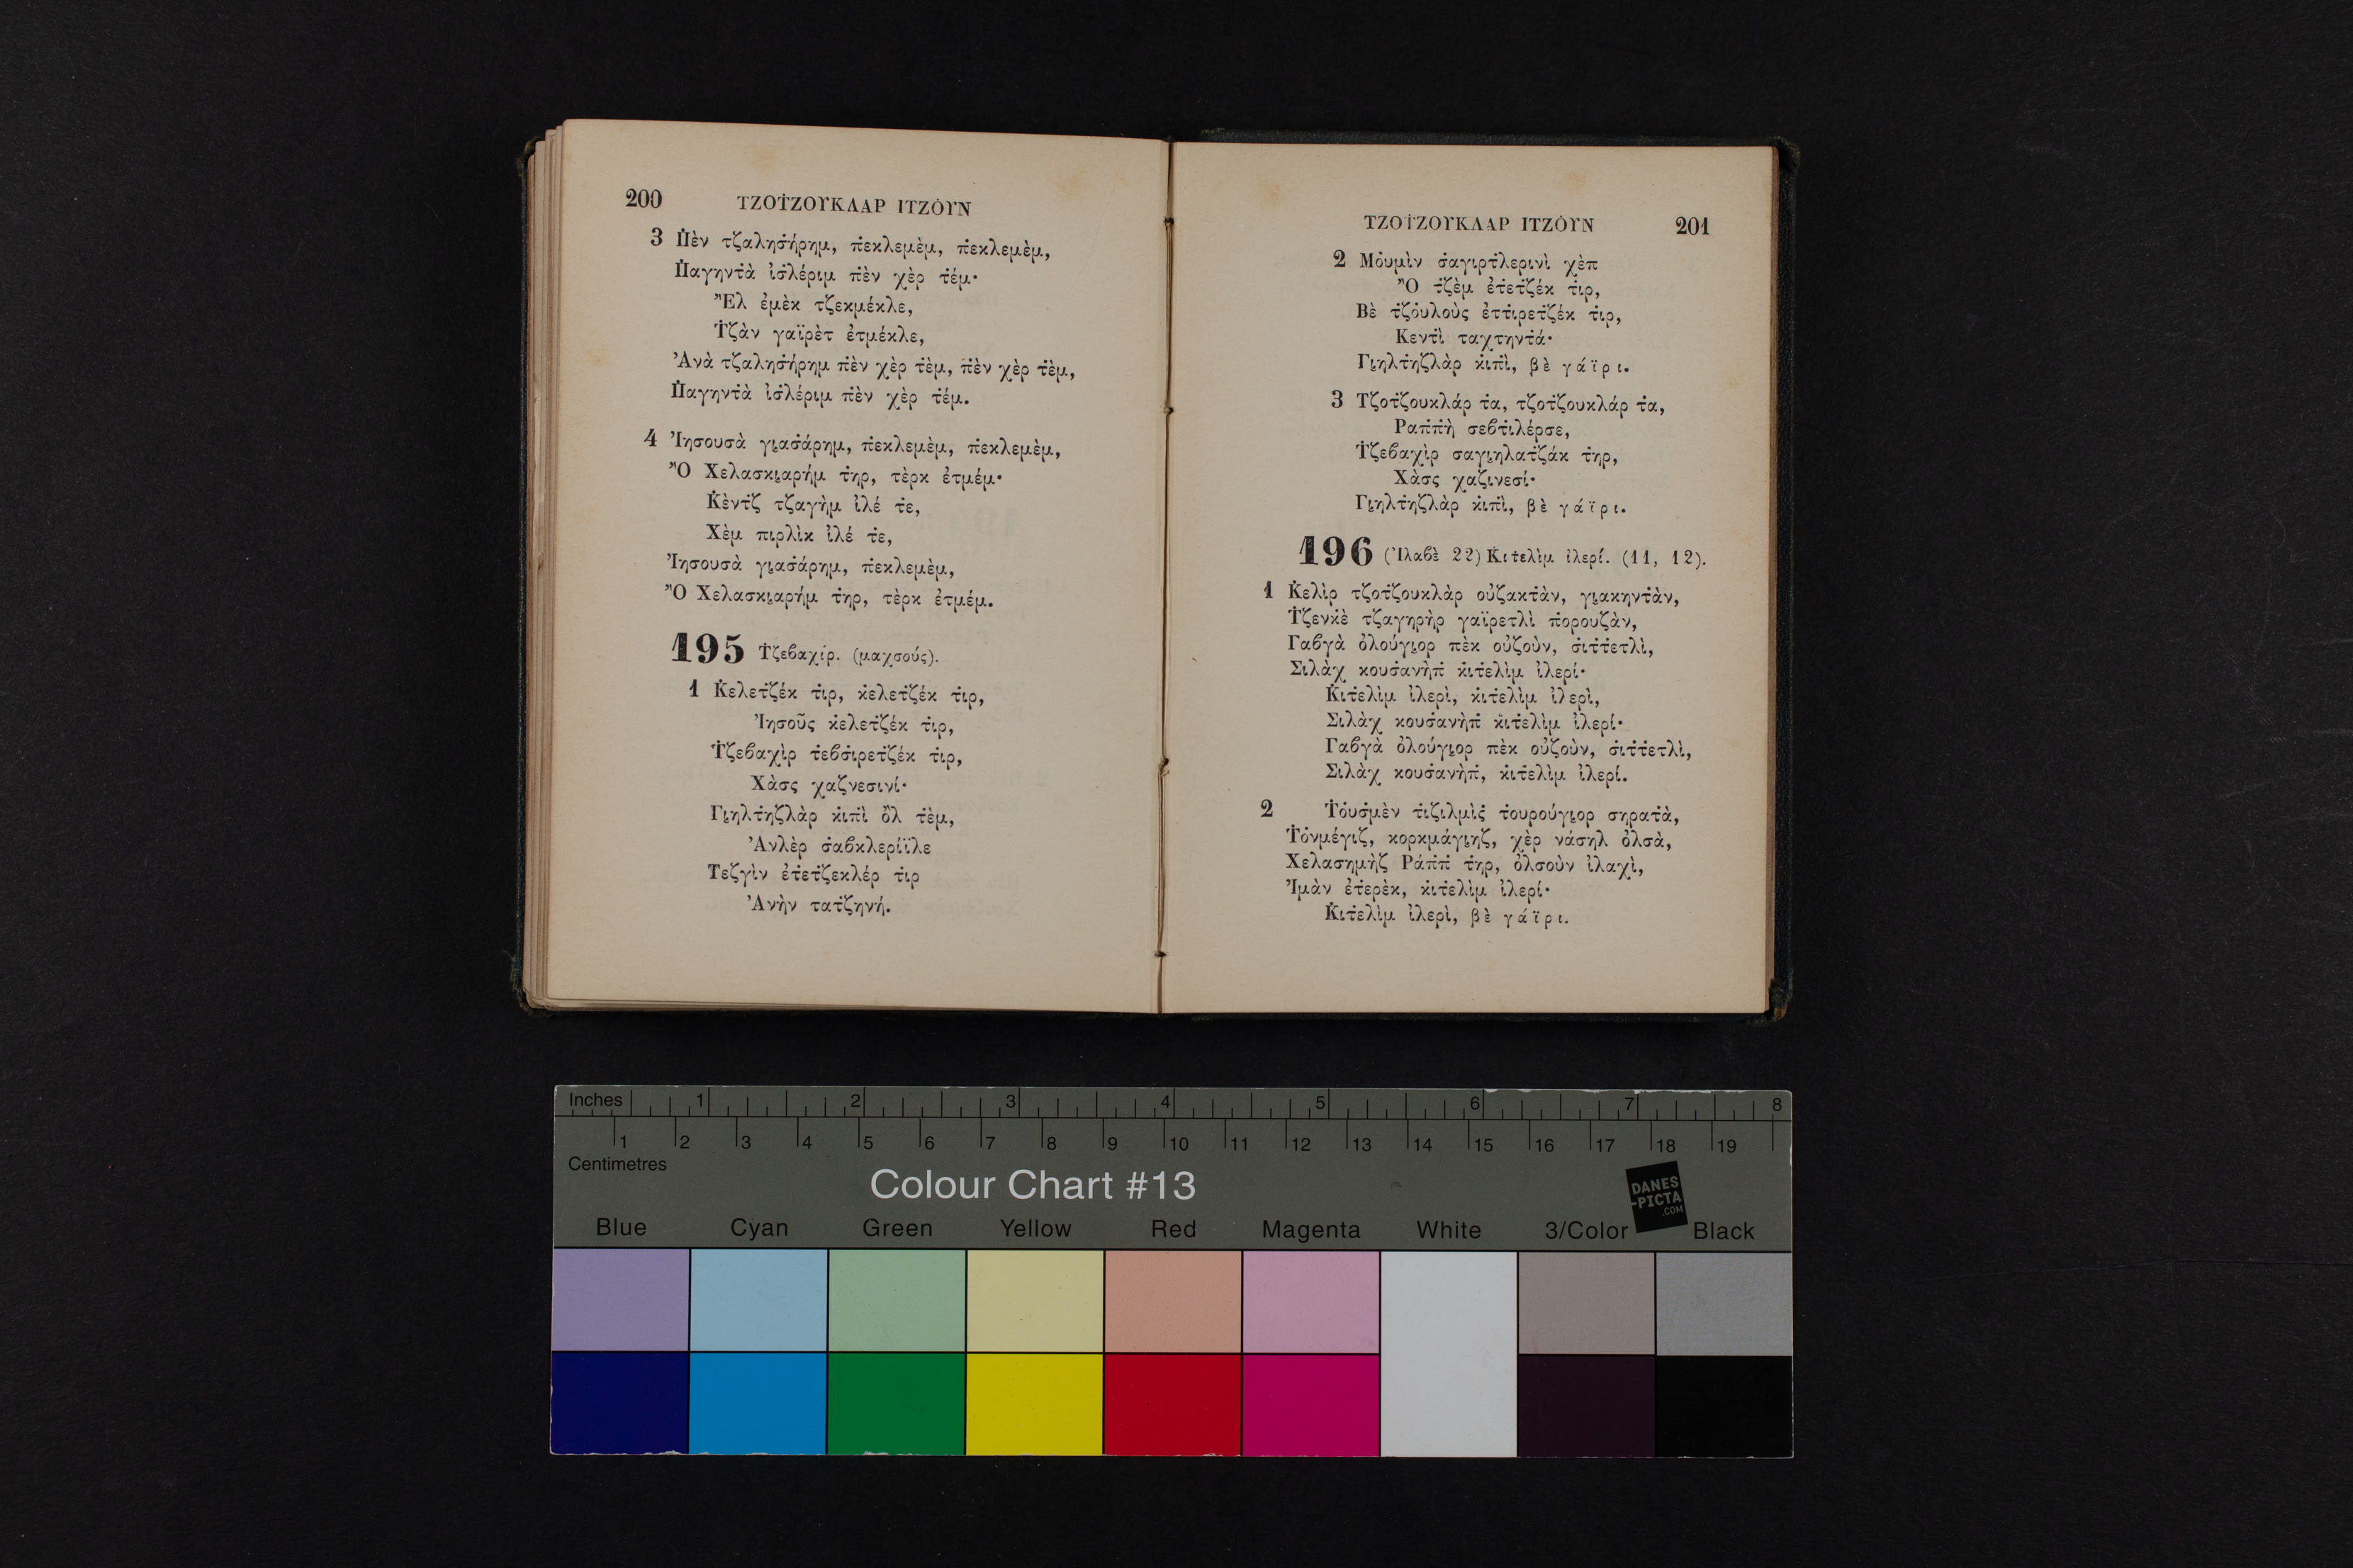 200 ΤΖΟΤ̇ΖΟΥΚΛΑΡ ΙΤΖΟΥ̇Ν
3 Π̇ὲν τζαλησ̇ήρημ, π̇εκλεμὲμ, π̇εκλεμὲμ,
Π̇αγηντ̇ὰ ἰσ̇λέριμ π̇ὲν χὲρ τ̇έμ·
Ἒλ ἐμὲκ τζεκμέκλε,
Τ̇ζὰν γαϊρὲτ ἐτμέκλε,
Ἀνὰ τζαλησ̇ήρημ π̇ὲν χὲρ τ̇ὲμ, π̇ὲν χὲρ τ̇ὲμ,
Π̇αγηντ̇ὰ ἰσ̇λέριμ π̇ὲν χὲρ τ̇έμ.
4 Ἰησουσὰ γι̥ασ̇άρημ, π̇εκλεμὲμ, π̇εκλεμὲμ,
Ὂ Χελασκι̥αρήμ τ̇ηρ, τὲρκ ἐτμέμ·
Κ̇ὲντ̇ζ τζαγὴμ ἰλέ τ̇ε,
Χὲμ πιρλὶκ ἰλέ τ̇ε,
Ἰησουσὰ γι̥ασ̇άρημ, π̇εκλεμὲμ,
Ὂ Χελασκι̥αρήμ τ̇ηρ, τὲρκ ἐτμέμ.
195 Τ̇ζεβαχίρ. (μαχσούς).
1 Κ̇ελετ̇ζέκ τ̇ιρ, κ̇ελετ̇ζέκ τ̇ιρ,
Ἰησοῦς κ̇ελετ̇ζέκ τ̇ιρ,
Τ̇ζεβαχὶρ τ̇εβσ̇ιρετ̇ζέκ τ̇ιρ,
Χὰσς χαζνεσινί·
Γι̥ηλτ̇ηζλὰρ κ̇ιπ̇ὶ ὂλ τ̇ὲμ,
Ἀνλὲρ σ̇αβκλερίϊλε
Τεζγὶν ἐτ̇ετ̇ζεκλέρ τ̇ιρ
Ἀνὴν τατ̇ζηνή.
ΤΖΟΤ̇ΖΟΥΚΛΑΡ ΙΤΖΟΥ̇Ν 201
2 Μοὺμὶν σ̇αγιρτ̇λερινὶ χὲπ
Ὂ τ̇ζὲμ ἐτ̇ετ̇ζέκ τ̇ιρ,
Βὲ τ̇ζουλοὺς ἐττ̇ιρετ̇ζέκ τ̇ιρ,
Κεντ̇ὶ ταχτηντ̇ά·
Γι̥ηλτ̇ηζλὰρ κ̇ιπ̇ὶ, βὲ γάϊρι.
3 Τζοτ̇ζουκλάρ τ̇α, τζοτ̇ζουκλάρ τ̇α,
Ραπ̇π̇ὴ σεβτ̇ιλέρσε,
Τ̇ζεβαχὶρ σαγι̥ηλατ̇ζάκ τ̇ηρ,
Χὰσς χαζινεσί·
Γι̥ηλτ̇ηζλὰρ κ̇ιπ̇ὶ, βὲ γάϊρι.
196 (Ἰλαβὲ 22) Κ̇ιτ̇ελὶμ ἰλερί. (11, 12).
1 Κ̇ελὶρ τζοτ̇ζουκλὰρ οὐζακτ̇ὰν, γι̥ακηντ̇ὰν,
Τ̇ζενκ̇ὲ τζαγηρὴρ γαϊρετλὶ π̇ορουζὰν,
Γαβγὰ ὀλούγι̥ορ πὲκ οὐζοὺν, σ̇ιτ̇τ̇ετλὶ,
Σιλὰχ κουσ̇ανὴπ̇ κ̇ιτ̇ελὶμ ἰλερί·
Κ̇ιτ̇ελὶμ ἰλερὶ, κ̇ιτ̇ελὶμ ἰλερὶ,
Σιλὰχ κουσ̇ανὴπ̇ κ̇ιτ̇ελὶμ ἰλερί·
Γαβγὰ ὀλούγι̥ορ πὲκ οὐζοὺν, σ̇ιτ̇τ̇ετλὶ,
Σιλὰχ κουσ̇ανὴπ̇, κ̇ιτ̇ελὶμ ἰλερί.
2 Τ̇ουσ̇μὲν τ̇ιζιλμὶς̇ τ̇ουρούγι̥ορ σηρατ̇ὰ,
Τ̇ὀνμέγιζ, κορκμάγι̥ηζ, χὲρ νάσηλ ὀλσὰ,
Χελασημὴζ Ράπ̇π̇ τ̇ηρ, ὀλσοὺν ἰλαχὶ,
Ἰμὰν ἐτ̇ερὲκ, κ̇ιτ̇ελὶμ ἰλερί·
Κ̇ιτ̇ελὶμ ἰλερὶ, βὲ γάϊρι.
Inches 1 2 3 4 5 6 7 8
1 2 3 4 5 6 7 8 9 10 11 12 13 14 15 16 17 18 19
Centimetres
Colour Chart #13
DANES
-PICTA
.COM
Blue Cyan Green Yellow Red Magenta White 3/Color Black